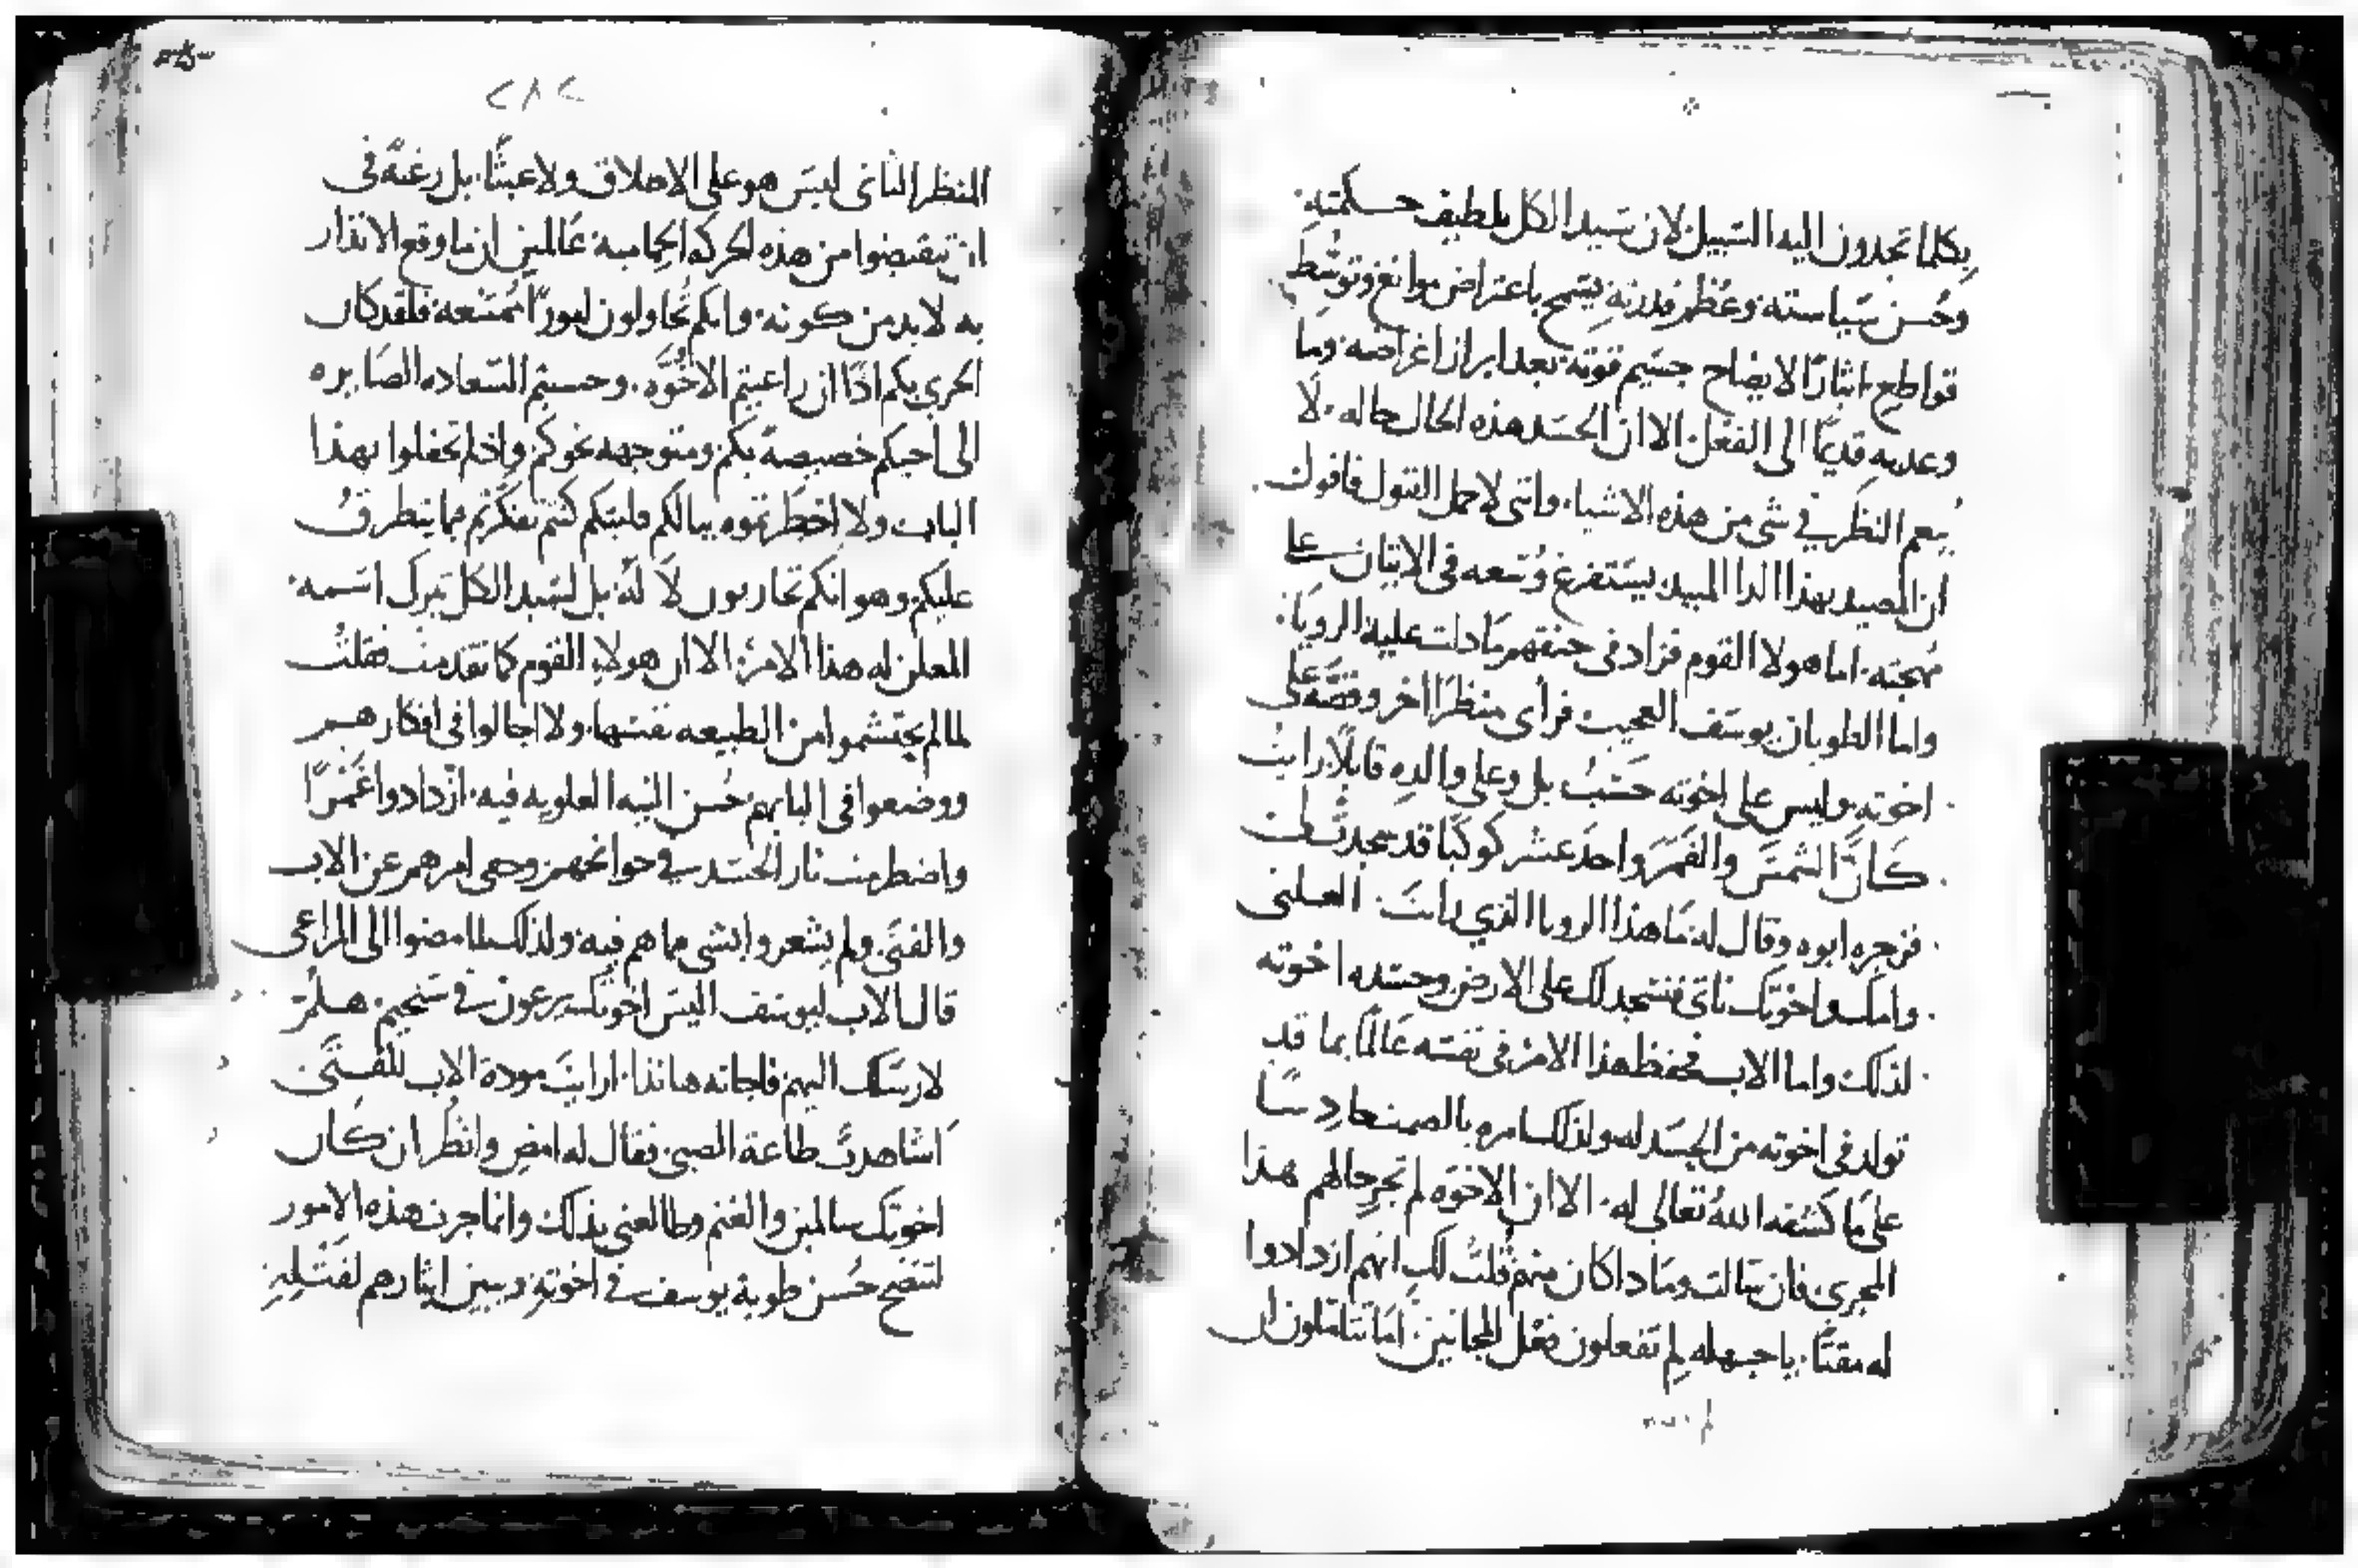 بكلما تجدون اليه السبيل لان سيد الكل بلطيف حكمته
وحسن سياسته وعظم قدرته يسمح باعتراض موانع وتوسط
قواطع ايثارًا لايضاح جسيم قوته بعد ابراز اغراضه وما
وعد به قديمًا الى الفعل الا ان الحسد هذه الحال حاله لا
ينعم النظر في شي من هذه الاشيا واننى لاجمل القول فاقول
ان المصيد بهذا الدا المبيد يستفرغ وسعه فى الاتيان على
مهجته اما هولا القوم فزاد فى حنقهم ما دلت عليه الرويا
واما الطوبان يوسف العجيب فرأى منظرًا اخر وقصه على
اخوته وليس على اخوته حسب بل وعلى والده قايلًا رايت
كأن الشمس والقمر واحد عشر كوكبًا قد سجدت لى
فزجره ابوه وقال له ما هذا الرويا الذي رايت العلنى
وامك واخوتك ناتى فنسجد لك على الارض وحسده اخوته
لذلك واما الاب فحفظ هذا الامر فى نفسه عالمًا بما قد
تولد فى اخوته من الحسد له ولذلك امره بالصمت حادسًا
على ما كشفه الله تعالى له الا ان الاخوه لم تجر حالهم هذا
المجرى فان سالت وما دا كان منهم قلت لك انهم ازدادوا
له مقتًا يا جهله لم تفعلون فعل المجانين اما تتاملون ان
٢٨٢
المنظر الثانى ليس هو على الاطلاق ولا عبثًا بل رغبةً فى
ان تنقبضوا من هذه الحركه الحاميه عالمين ان ما وقع الانذار
به لا بد من كونه وانكم تحاولون امورًا ممتنعه فلقد كان
الحري بكم اذًا ان راعيتم الاخوه وحسبتم السعاده الصايره
الى اخيكم خصيصة بكم ومتوجهه نحوكم واذا لم تحفلوا بهذا
الباب ولا اخطرتموه ببالكم فليتكم كنتم تفكرتم فيما يتطرق
عليكم وهو انكم تحاربون لا له بل لسيد الكل تبرك اسمه
المعلن له هذا الامر الا ان هولاء القوم كما تقدمت فقلت
لما لم يحتشموا من الطبيعه نفسها ولا اجالوا فى افكارهم
ووضعوا فى البابهم حسن النيه العلويه فيه ازدادوا غمرًا
واضطرمت نار الحسد في جوانحهم وخفى امرهم عن الاب
والفتى ولم يشعروا بشى مما هم فيه ولذلك لما مضوا الى المراعى
قال الاب ليوسف اليس اخوتك يرعون في شخيم هلم
لارسلك اليهم فاجابه هانذا ارايت مودة الاب للفتى
اشاهدت طاعة الصبى فقال له امض وانظر ان كان
اخوتك سالمين والغنم وطالعنى بذلك وانما جرت هذه الامور
لتتضح حسن طوية يوسف في اخوته ويبين ايثارهم لقتله